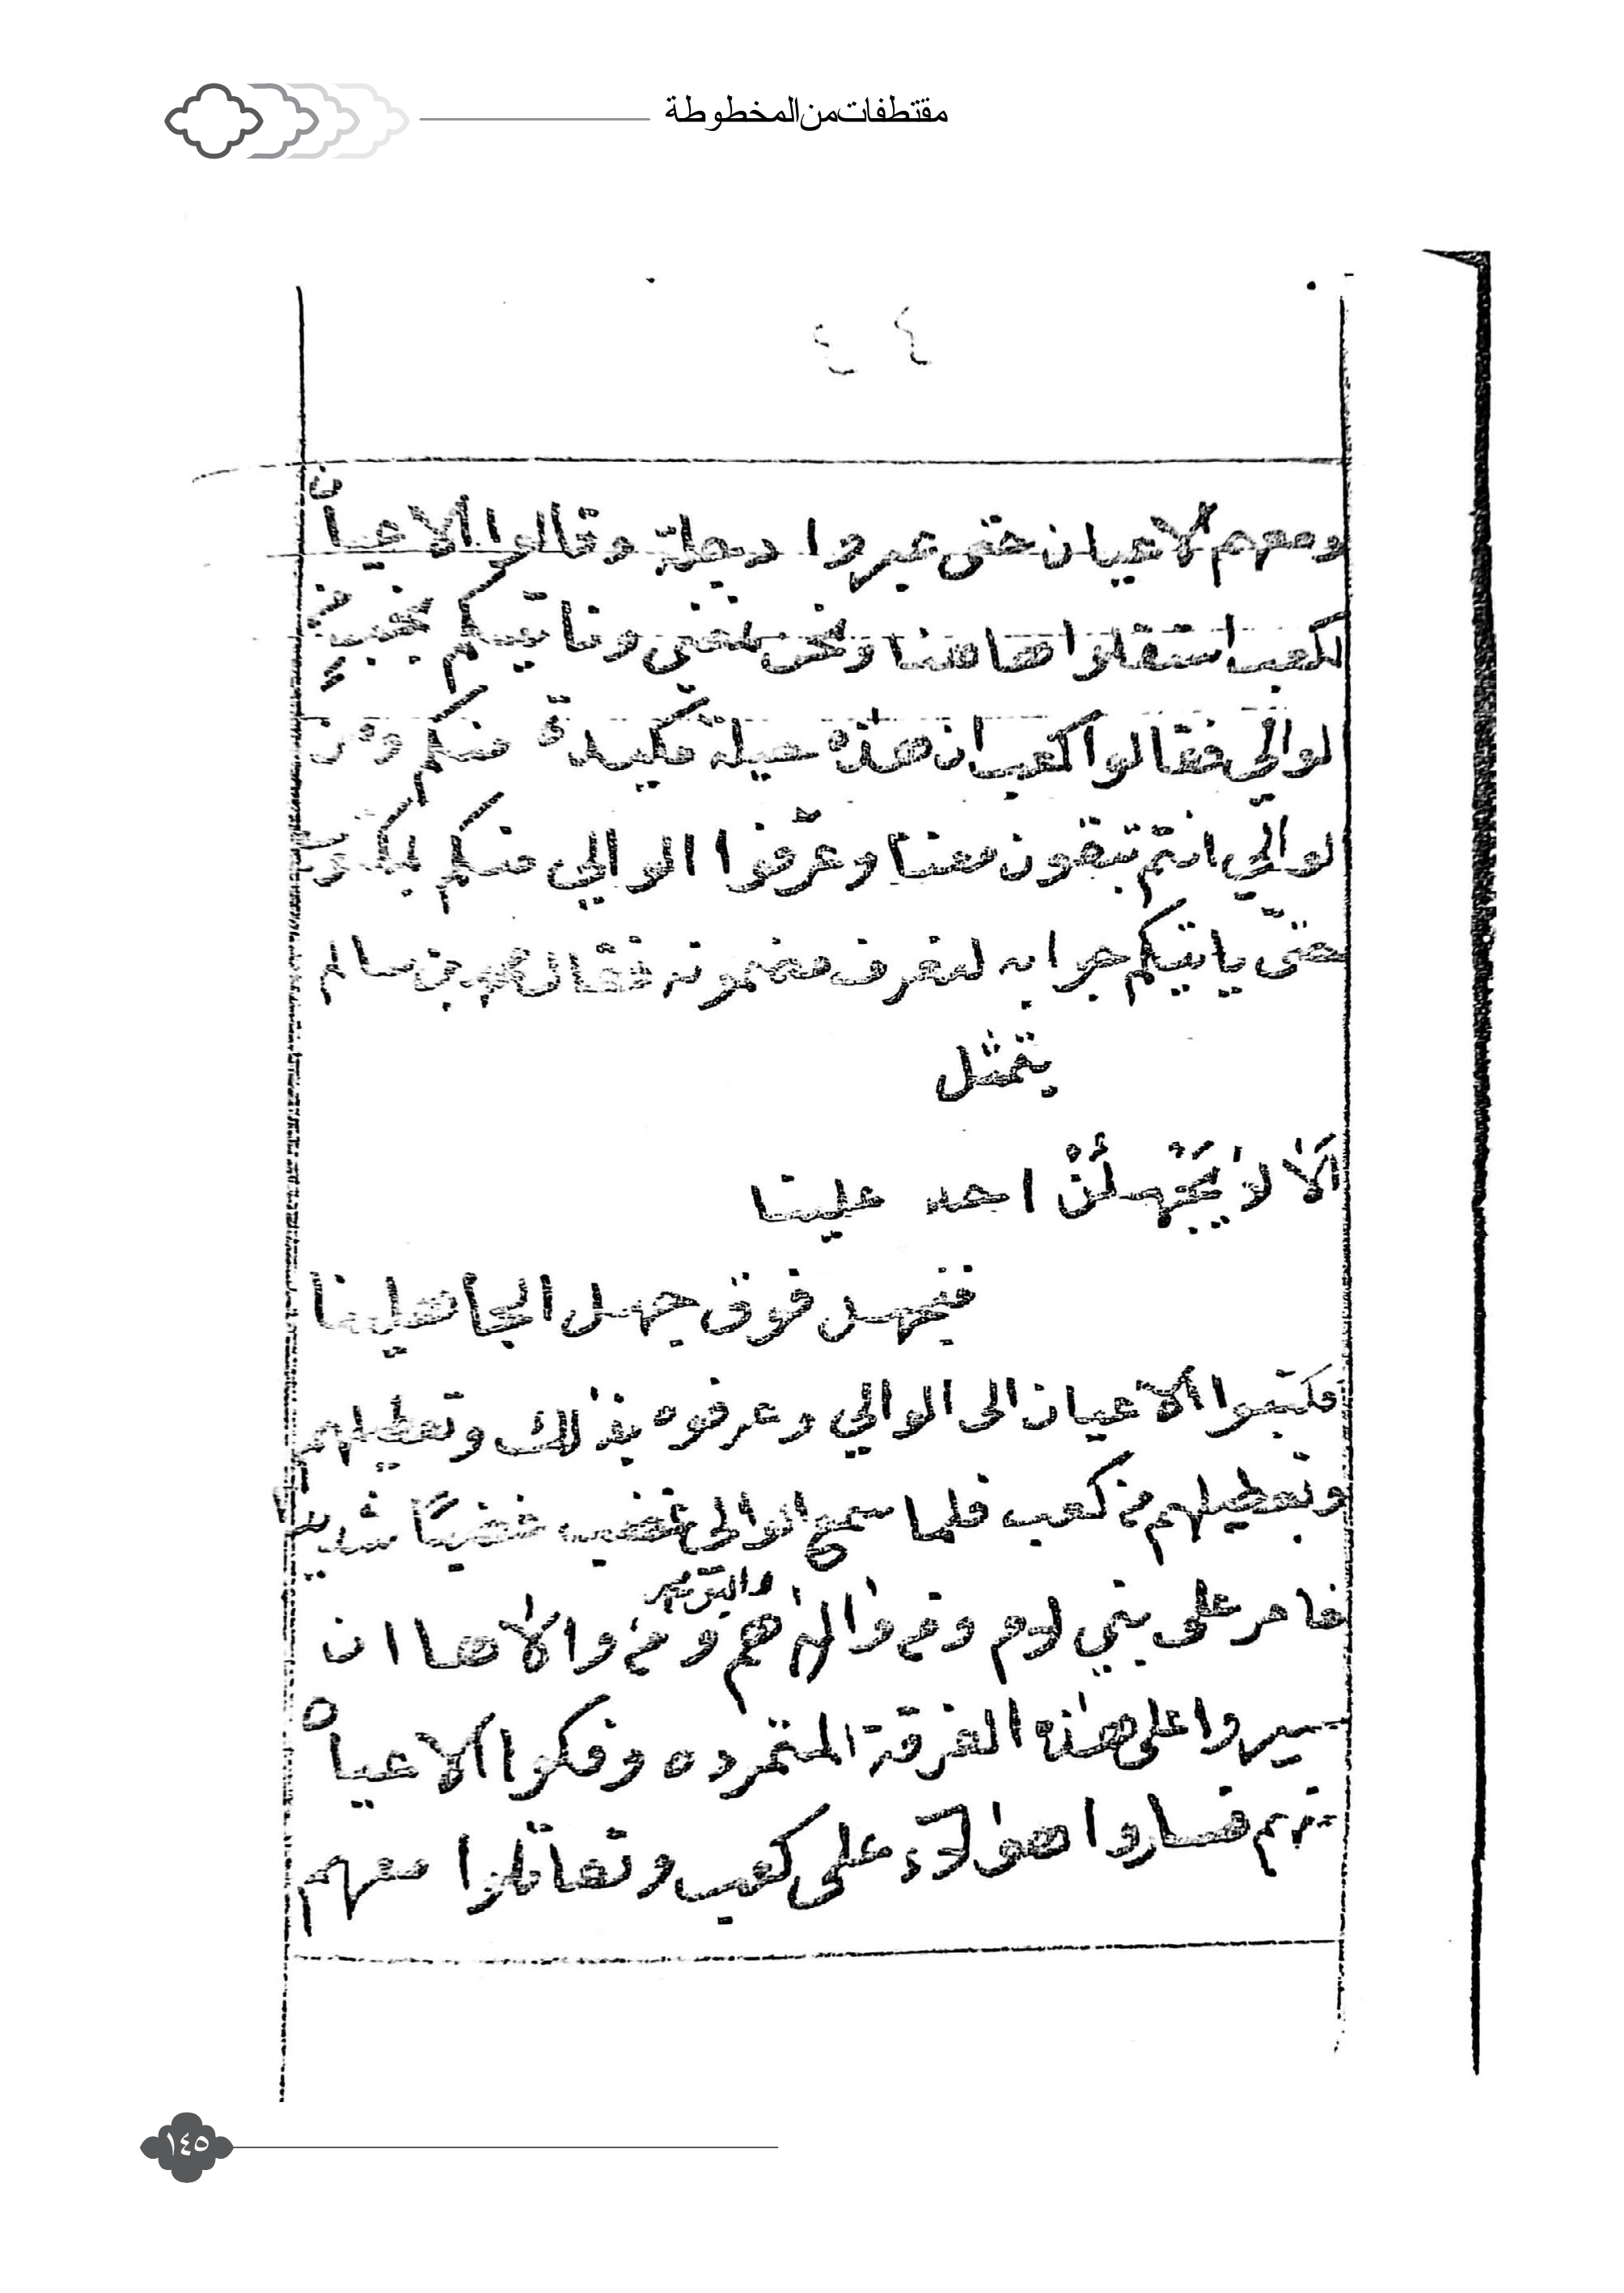 مقتطفات من المخطوطة
٤٤
ومعهم الاعيان حتى عبروا دجلة وقالوا الاعيان
لكعب استقلوا هاهنا ونحن نمضي وناتيكم بخبر من
لوالي فقالوا كعب ان هذه حيلة مكيدة منكم ومن
لوالي انتم تبقون معنا وعرّفوا الوالي منكم
حتّى ياتيكم جوابه لنعرف مضمونه فقال محمد بن سالم
يتمثل
اَلَا لَا يَجْهَلَنْ احد علينا
فنجهل فوق جهل الجاهلينا
فكتبوا الاعيان الى الوالي وعرفوه بذلك وتعطيلهم
وتعطيلهم من كعب فلما سمع الوالي غضب غضبًا شديدا
فامر على بني لام ومن والاهم ومن والاها ان
يسيروا على هذه الفرقة المتمرده وفكوا الاعيان
منهم فساروا هولآء على كعب وتقاتلوا معهم
١٤٥